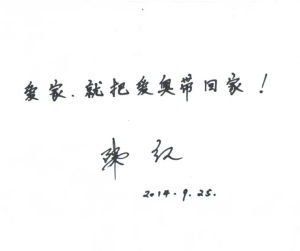 爱家.就把爱奥带回家!
陈红
2014.9.25.